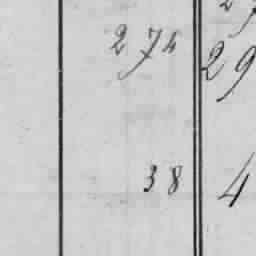 274 29
38 4